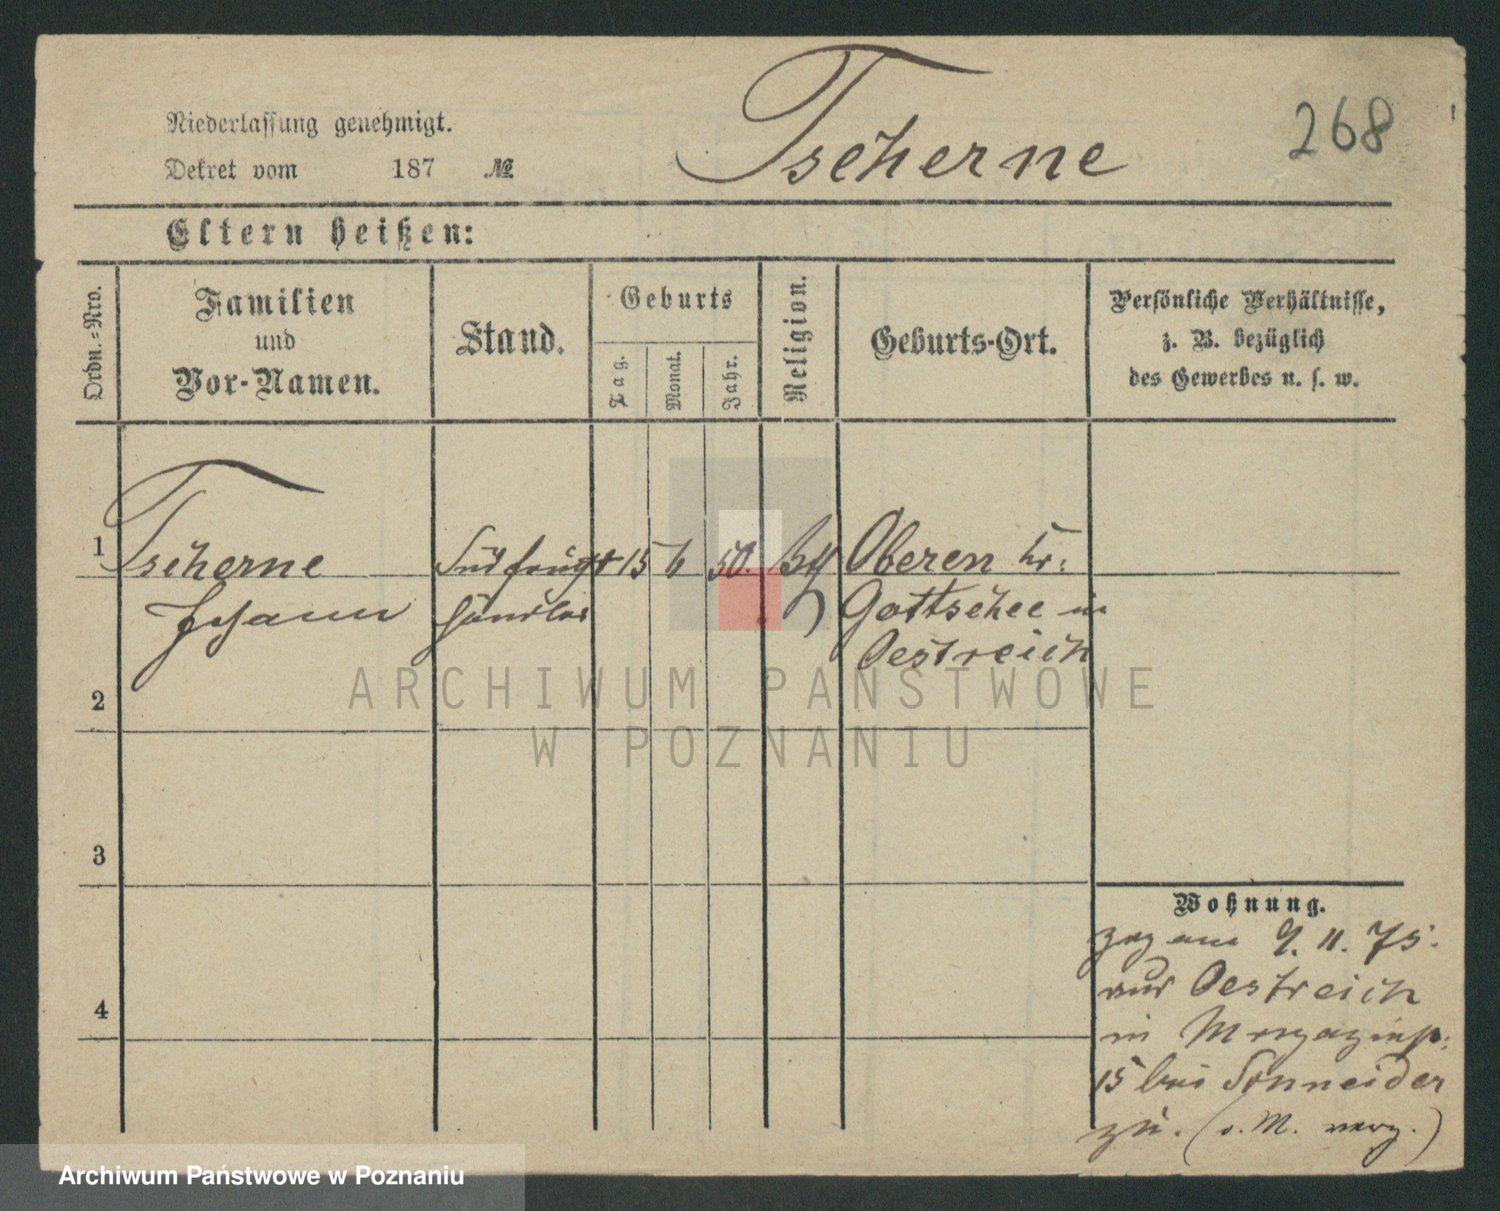 Niederlassung genehmigt.
Dekret vom 187 №
Tscherne
268
Eltern heißen:
Ordn.-Nro.
Familien
und
Vor-Namen.
Stand.
Geburts
Tag.
Monat.
Jahr.
Religion.
Geburts-Ort.
Persönliche Verhältnisse,
z. B. bezüglich
des Gewerbes u. s. w.
1 Tscherne Südfrügt 15 6 50. Oberen Kr:
Johann händler Gottschee in
Oestreich
2
ARCHIWUM PAŃSTWOWE
W POZNANIU
3
4
Wohnung.
zog am 9. 11. 75.
aus Oestreich
in Magazinst:
15 bei Schneider
zu.
Archiwum Państwowe w Poznaniu